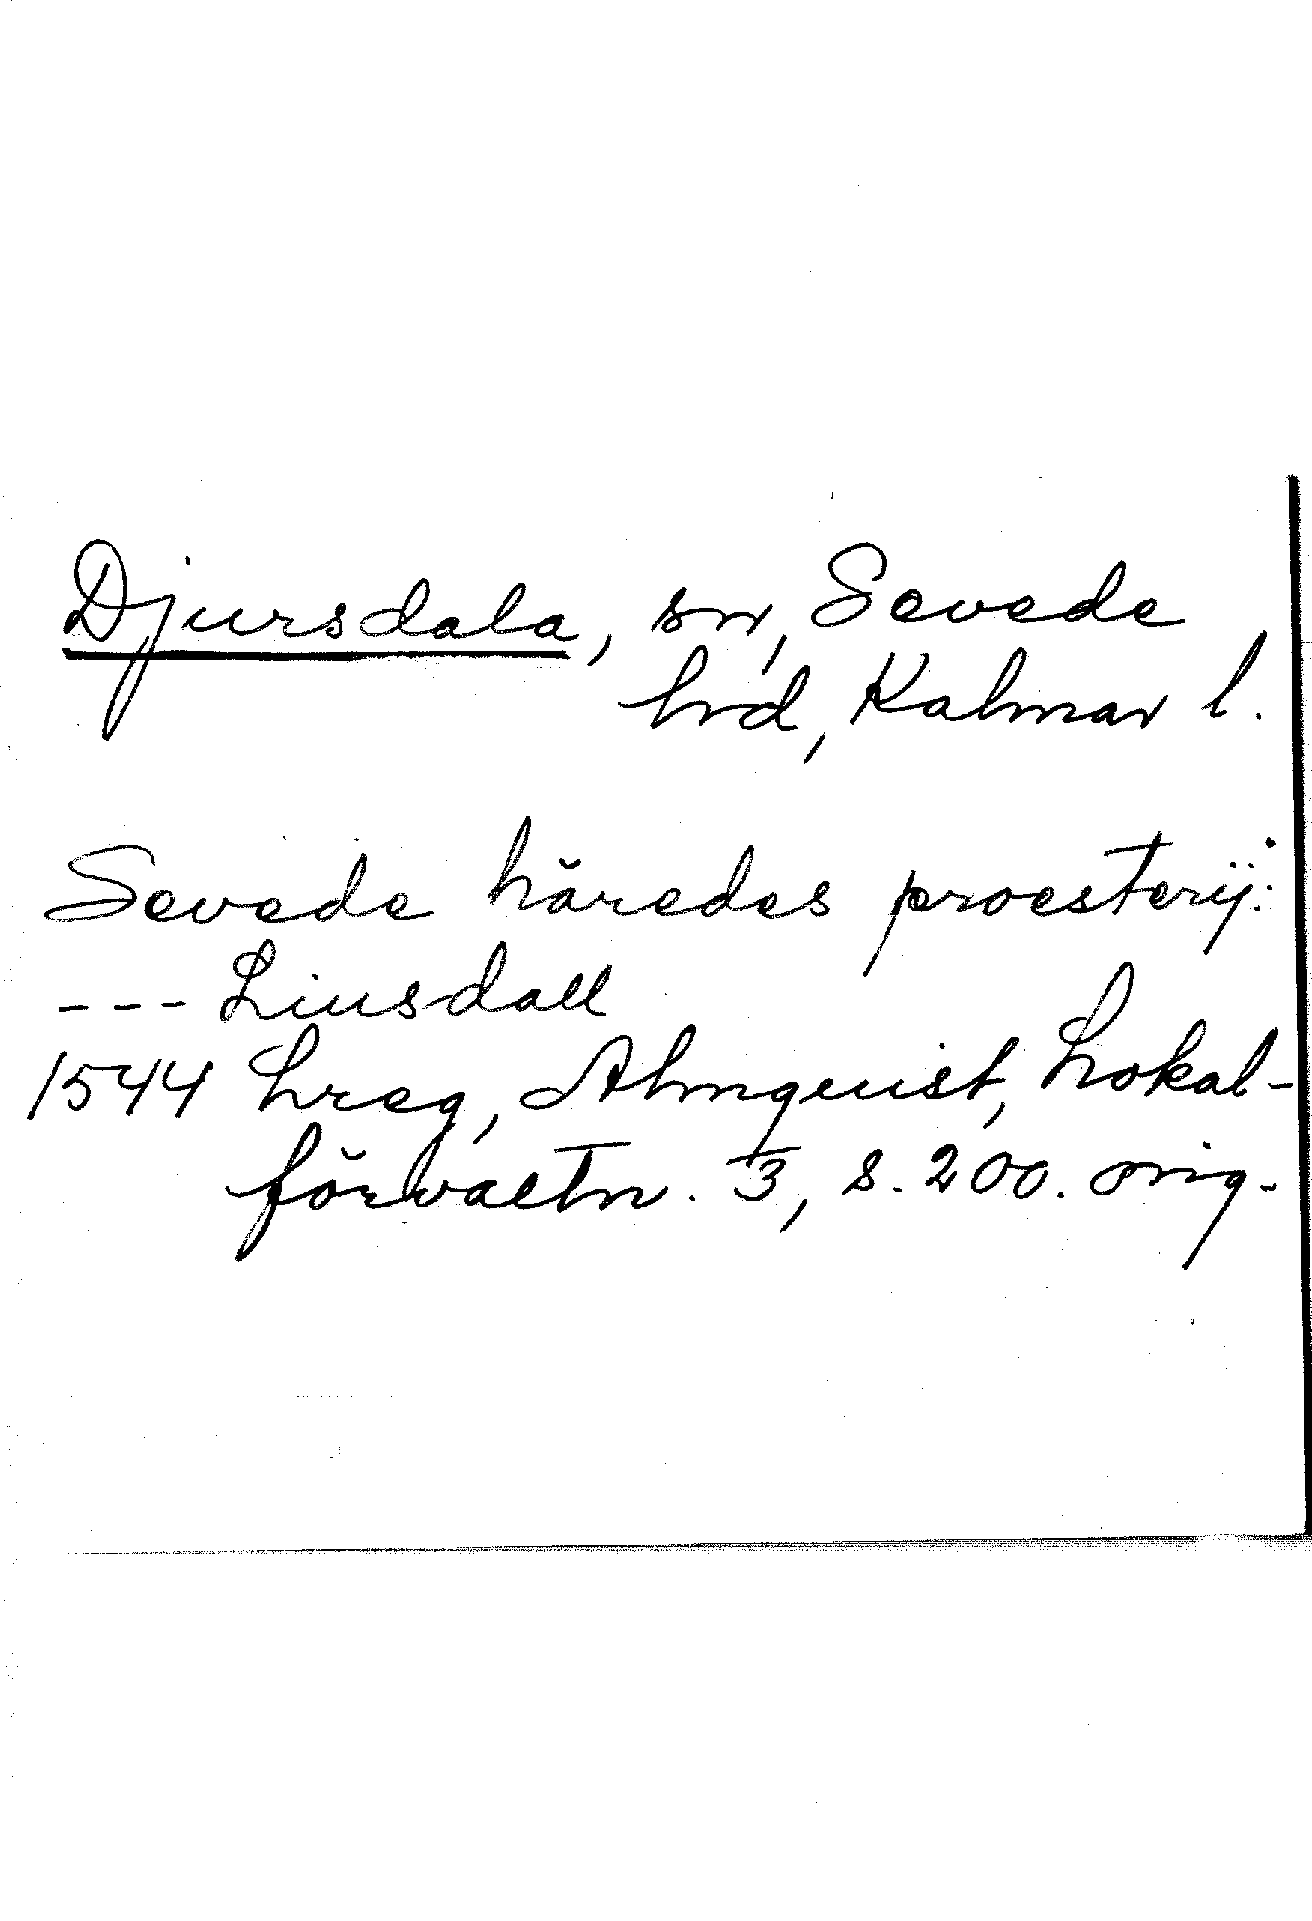 Djursdala, sn, Sevede
hrd, Kalmar l.
Sevede häredes proesterÿ:
--- Liusdall
1544 Lreg, Almquist, Lokal-
förvaltn. 3, s. 200. orig.